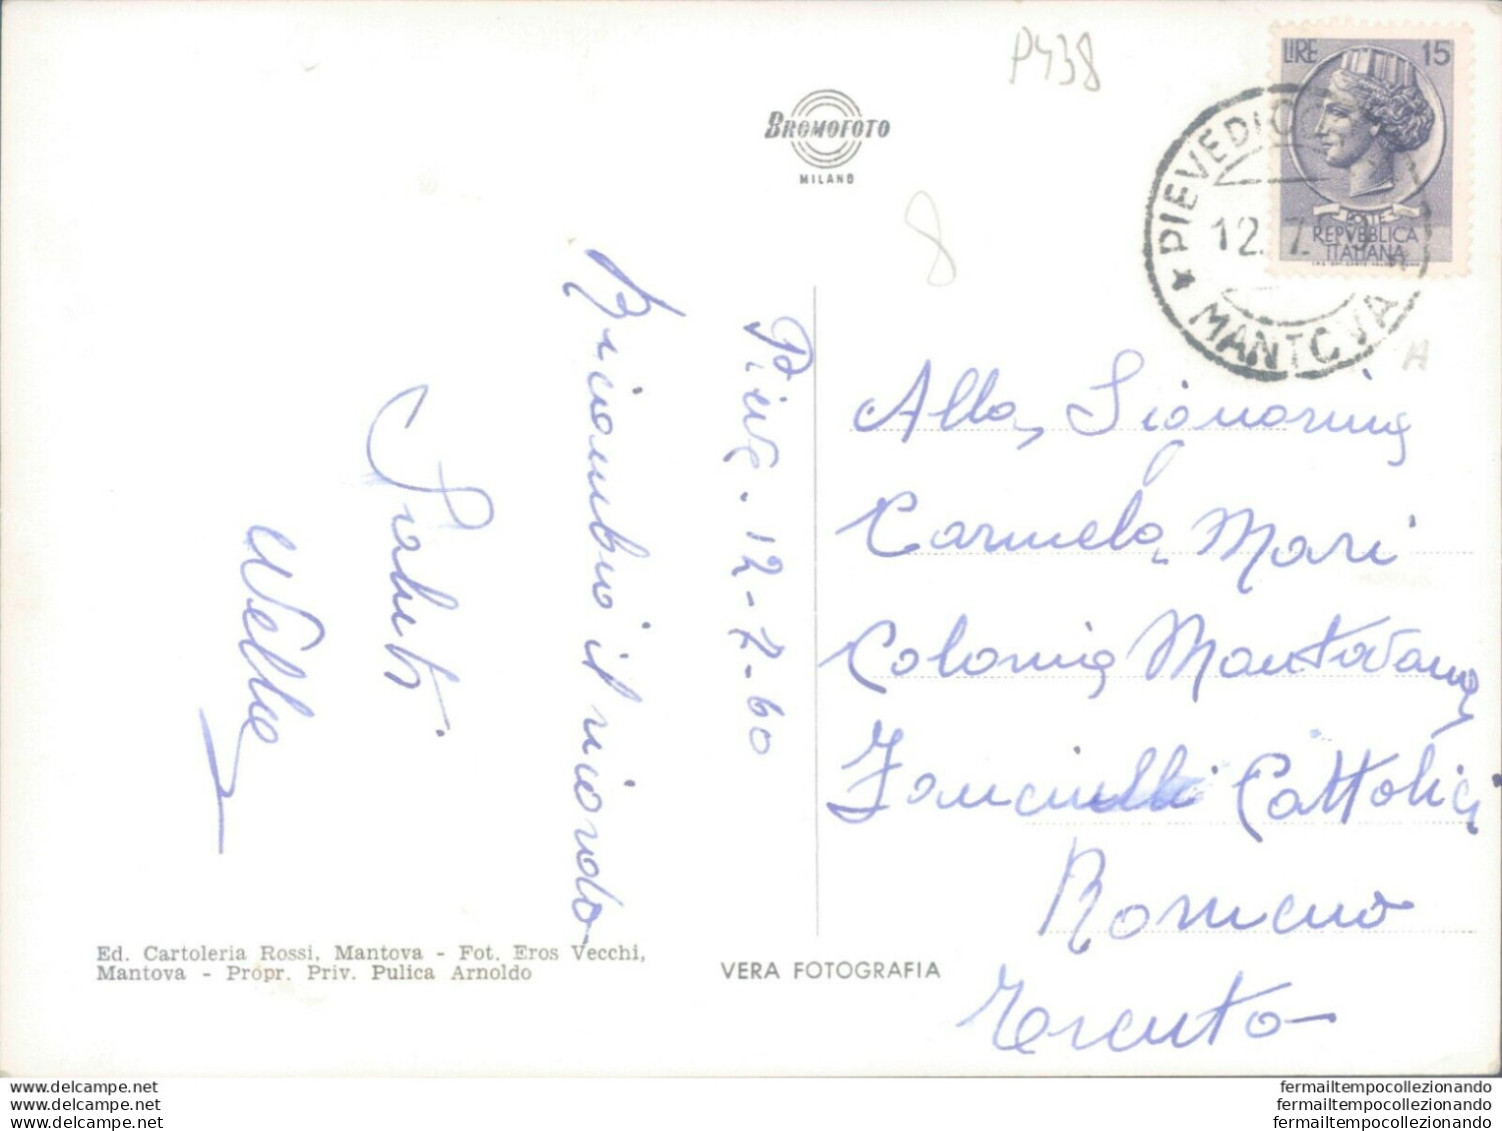 P438
BROMOFOTO
MILANO
LIRE 15
POSTE
REPVBBLICA
ITALIANA
PIEVEDICO
12. 7.
MANTOVA
8
A
Pieve. 12-7-60
Bricambio il ricordo
Saluti
Wellee
Alla Signorina
Carmela Mari
Colonia Mantovana
Fanciulli Cattolici
Romeno
Trento
Ed. Cartoleria Rossi, Mantova - Fot. Eros Vecchi,
Mantova - Propr. Priv. Pulica Arnoldo
VERA FOTOGRAFIA
www.delcampe.net
www.delcampe.net
www.delcampe.net
fermailtempocollezionando
fermailtempocollezionando
fermailtempocollezionando